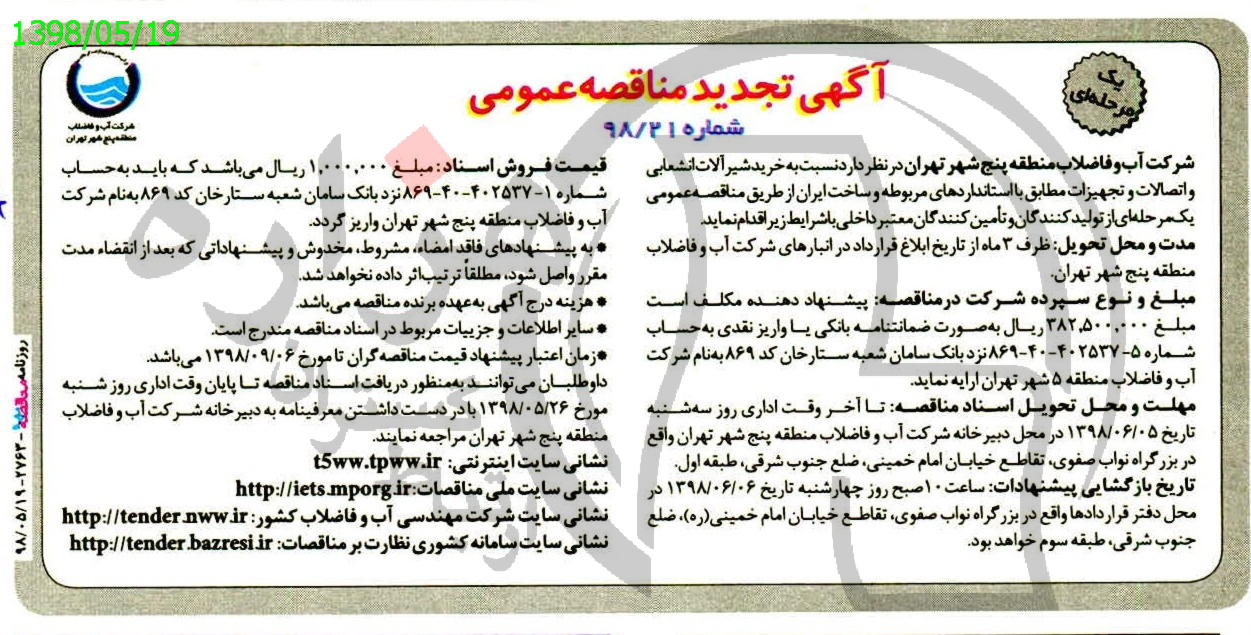 1398/05/19
شرکت آب و فاضلاب
منطقه پنج شهر تهران
یک
مرحله‌ای
آگهی تجدید مناقصه عمومی
شماره ۹۸/۲۱
شرکت آب و فاضلاب منطقه پنج شهر تهران در نظر دارد نسبت به خرید شیرآلات انشعابی
و اتصالات و تجهیزات مطابق با استانداردهای مربوطه و ساخت ایران از طریق مناقصه عمومی
یک مرحله‌ای از تولید کنندگان و تأمین کنندگان معتبر داخلی با شرایط زیر اقدام نماید.
مدت و محل تحویل: ظرف ۳ ماه از تاریخ ابلاغ قرارداد در انبارهای شرکت آب و فاضلاب
منطقه پنج شهر تهران.
مبلغ و نوع سپرده شرکت در مناقصه: پیشنهاد دهنده مکلف است
مبلغ ۳۸۲,۵۰۰,۰۰۰ ریال به‌صورت ضمانتنامه بانکی یا واریز نقدی به‌حساب
شماره ۵-۴۰۲۵۳۷-۴۰-۸۶۹ نزد بانک سامان شعبه ستارخان کد ۸۶۹ به‌نام شرکت
آب و فاضلاب منطقه ۵ شهر تهران ارایه نماید.
مهلت و محل تحویل اسناد مناقصه: تا آخر وقت اداری روز سه‌شنبه
تاریخ ۱۳۹۸/۰۶/۰۵ در محل دبیرخانه شرکت آب و فاضلاب منطقه پنج شهر تهران واقع
در بزرگراه نواب صفوی، تقاطع خیابان امام خمینی، ضلع جنوب شرقی، طبقه اول.
تاریخ بازگشایی پیشنهادات: ساعت ۱۰ صبح روز چهارشنبه تاریخ ۱۳۹۸/۰۶/۰۶ در
محل دفتر قراردادها واقع در بزرگراه نواب صفوی، تقاطع خیابان امام خمینی(ره)، ضلع
جنوب شرقی، طبقه سوم خواهد بود.
قیمت فروش اسناد: مبلغ ۱,۰۰۰,۰۰۰ ریال می‌باشد که باید به‌حساب
شماره ۱-۴۰۲۵۳۷-۴۰-۸۶۹ نزد بانک سامان شعبه ستارخان کد ۸۶۹ به‌نام شرکت
آب و فاضلاب منطقه پنج شهر تهران واریز گردد.
* به پیشنهادهای فاقد امضاء، مشروط، مخدوش و پیشنهاداتی که بعد از انقضاء مدت
مقرر واصل شود، مطلقاً ترتیب‌اثر داده نخواهد شد.
* هزینه درج آگهی به‌عهده برنده مناقصه می‌باشد.
* سایر اطلاعات و جزییات مربوط در اسناد مناقصه مندرج است.
* زمان اعتبار پیشنهاد قیمت مناقصه‌گران تا مورخ ۱۳۹۸/۰۹/۰۶ می‌باشد.
داوطلبان می‌توانند به‌منظور دریافت اسناد مناقصه تا پایان وقت اداری روز شنبه
مورخ ۱۳۹۸/۰۵/۲۶ با در دست داشتن معرفینامه به دبیرخانه شرکت آب و فاضلاب
منطقه پنج شهر تهران مراجعه نمایند.
نشانی سایت اینترنتی: t5ww.tpww.ir
نشانی سایت ملی مناقصات: http://iets.mporg.ir
نشانی سایت شرکت مهندسی آب و فاضلاب کشور: http://tender.nww.ir
نشانی سایت سامانه کشوری نظارت بر مناقصات: http://tender.bazresi.ir
روزنامه مناقصه - ۲۷۶۳ - ۹۸/۰۵/۱۹